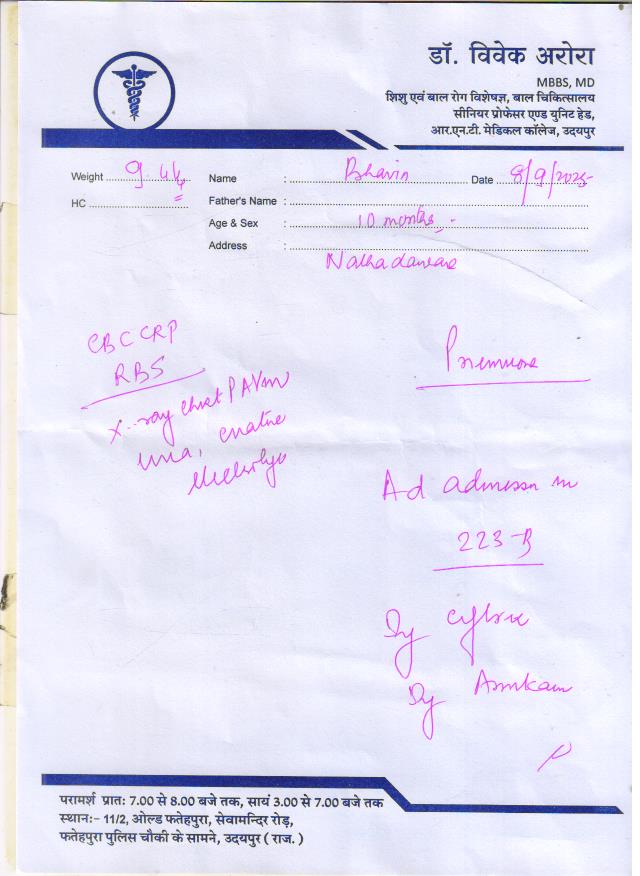 डॉ. विवेक अरोरा
MBBS, MD
शिशु एवं बाल रोग विशेषज्ञ, बाल चिकित्सालय
सीनियर प्रोफेसर एण्ड युनिट हेड,
आर.एन.टी. मेडिकल कॉलेज, उदयपुर
Weight 9.44 Name : Bhavin Date 8/9/2025
HC Father's Name :
Age & Sex : 10 months
Address :
CBC CRP
RBS
X-ray chest PA View
Ad admission in
223-B
परामर्श प्रातः 7.00 से 8.00 बजे तक, सायं 3.00 से 7.00 बजे तक
स्थान:- 11/2, ओल्ड फतेहपुरा, सेवामन्दिर रोड़,
फतेहपुरा पुलिस चौकी के सामने, उदयपुर ( राज. )